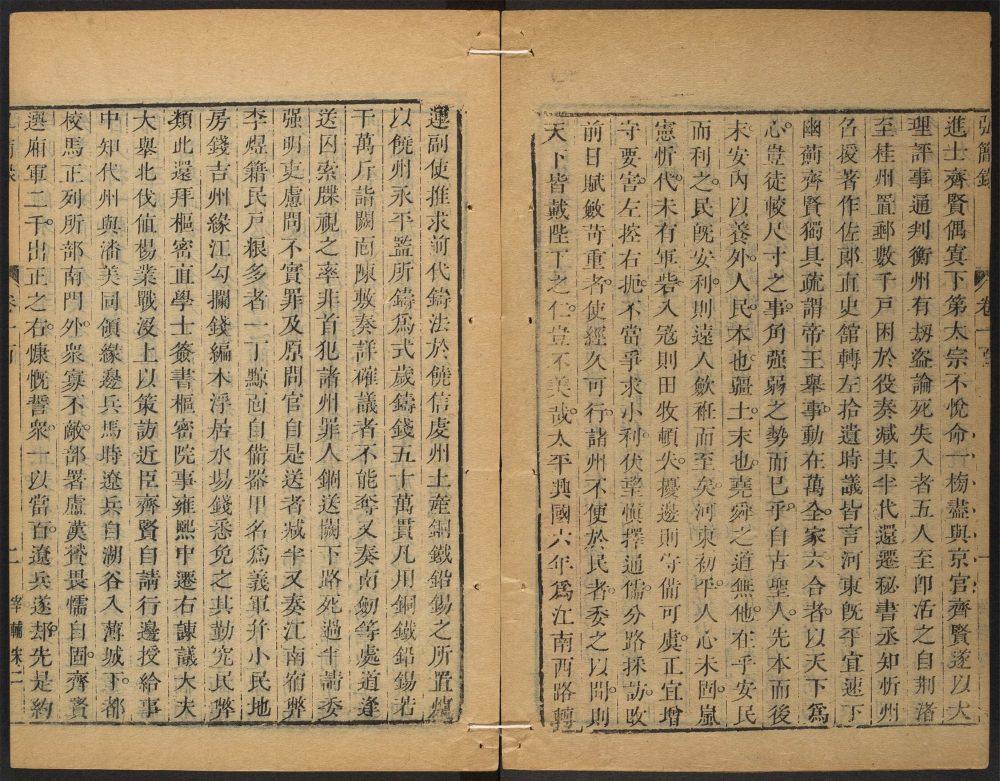 弘簡錄
進士齊賢偶寘下第太宗不悅命一榜盡與京官齊賢遂以大
理評事通判衡州有刼盜論死失入者五人至卽活之自荆渚
至桂州置郵數千戶困於役奏减其半代還遷秘書丞知忻州
召授著作佐郎直史館轉左拾遺時議皆言河東旣平宜速下
幽薊齊賢獨具疏謂帝王舉事動在萬全家六合者以天下爲
心豈徒恔尺寸之事角强弱之勢而巳乎自古聖人先本而後
末安內以養外人民本也疆土末也堯舜之道無他在乎安民
而利之民旣安利則遠人歛袵而至矣河東初平人心未固嵐
憲忻代未有軍砦入冦則田牧頓失擾邊則守備可虞正宜增
守要害左控右扼不當爭求小利伏望愼擇通儒分路採訪收
前日賦斂苛重者使經久可行諸州不便於民者委之以聞則
天下皆戴陛下之仁豈不美哉太平興國六年爲江南西路轉
運副使推求前代鑄法於饒信虔州土產銅鐵鉛錫之所置爐
以饒州永平監所鑄爲式歲鑄錢五十萬貫凡用銅鐵鉛錫若
干萬斤詣闕面陳敷奏詳確議者不能奪又奏南劒等處道逢
送囚索牒視之率非首犯諸州罪人錮送闕下路死過半請委
强明吏慮問不實罪及原問官自是送者减半又奏江南宿弊
李煜籍民戶粮多者一丁黥面自備器甲名爲義軍幷小民地
房錢吉州緣江勾攔錢編木浮居水場錢悉免之其勤究民弊
類此還拜樞密直學士簽書樞密院事雍熙中遷右諫議大夫
大舉北伐值楊業戰沒上以策訪近臣齊賢自請行邊授給事
中知代州與潘美同領緣邊兵馬時遼兵自湖谷入薄城下都
校馬正列所部南門外衆寡不敵部署盧漢贇畏懦自固齊賢
選廂軍二千出正之右慷慨誓衆一以當百遼兵遂却先是約